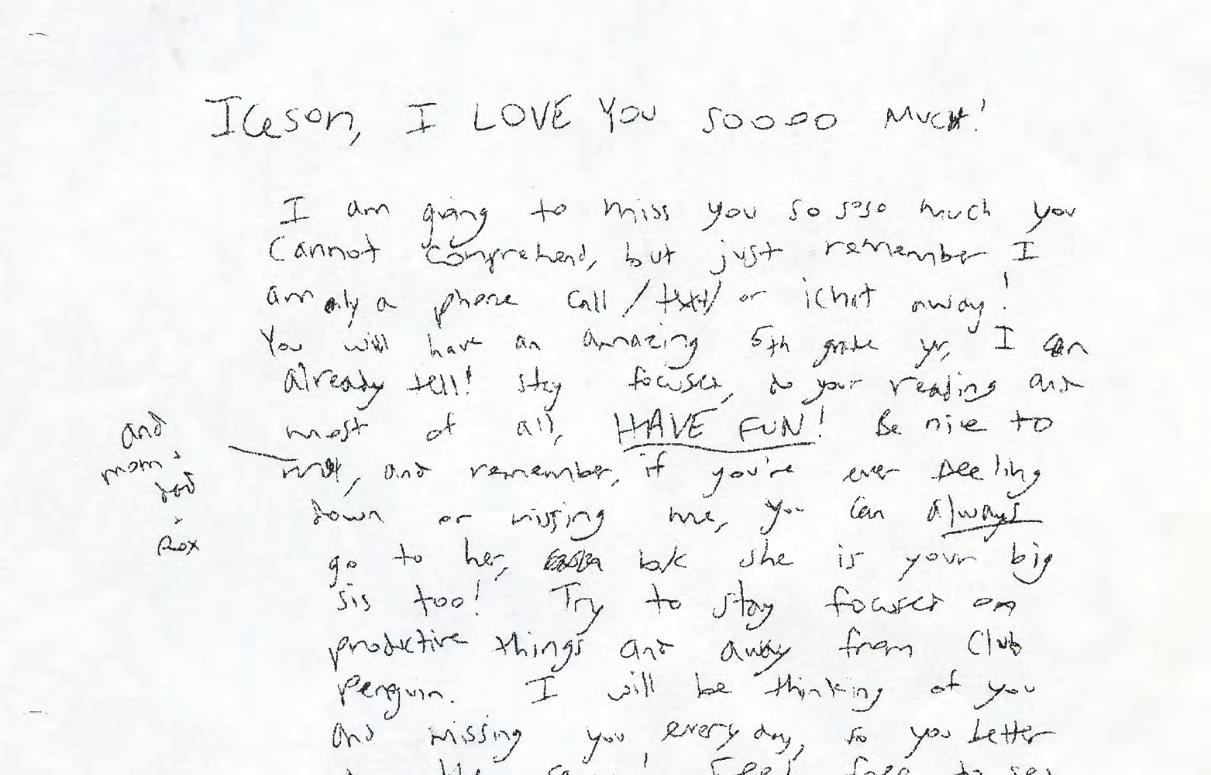 I LOVE YOU soooo MUCH!
I am going to miss you so soso much you
Cannot comprehend, but just remember I
am only a phone call / txt/ or ichat away!
You will have an amazing 5th grade yr, I can
already tell! stay focused, do your reading and
most of all, HAVE FUN! Be nice to
and
mom +
dad
+
Rox
, and remember, if you're ever feeling
down or missing me, you can always
go to her, b/c she is your big
sis too! Try to stay focused on
productive things and away from Club
Penguin. I will be thinking of you
and missing you every day, so you better
feel free to